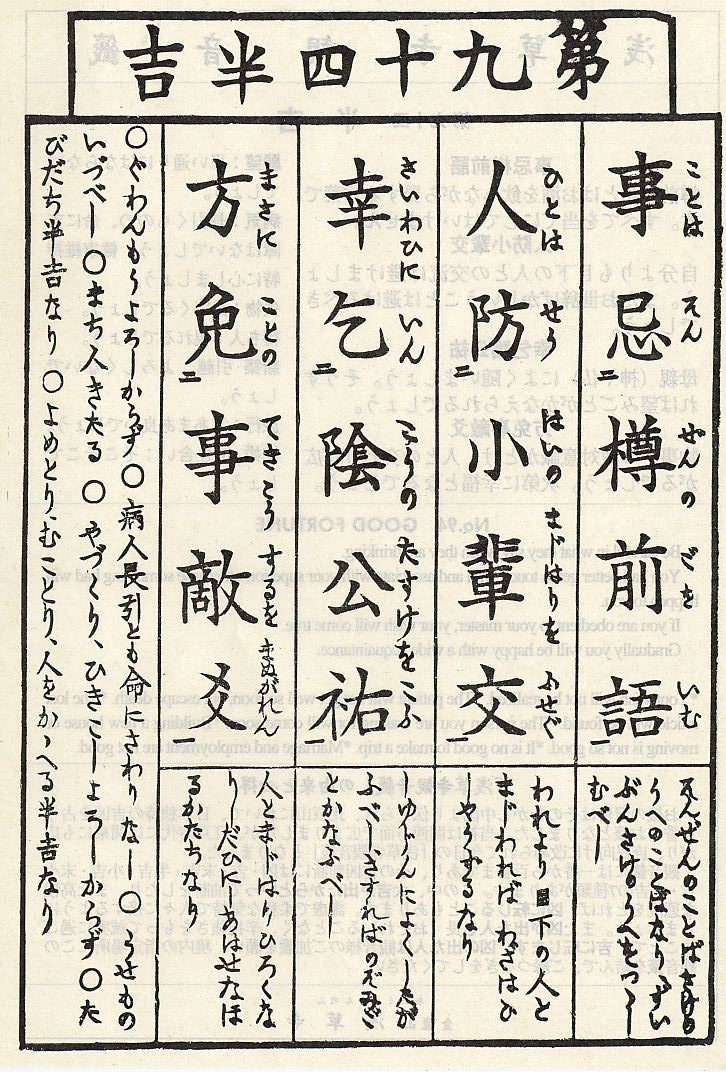 第九十四半吉
事忌二樽前語一
ことは えん ぜんの ごを いむ
人防二小輩交一
ひとは せう はいの まじはりを ふせぐ
幸乞二陰公祐一
さいわひに いん こうの たすけを こふ
方免二事敵爻一
まさに ことの てきとう するを まぬがれん
そんぜんのことばさけの
うへのことばなりずい
ぶんさけのうへをつゝし
むべし
われより目下の人と
まじわればわざはひ
しやうずるなり
しゆうくんによくしたが
ふべしさすればのぞみご
とかなふべし
人とまじはりひろくな
りしだひにしあはせなほ
るかたちなり
○ぐわんもうよろしからず○病人長引とも命にさわりなし○うせもの
いづべし○まち人きたる○やづくり、ひきこしよろしからず○た
びだち半吉なり○よめとり、むことり、人をかゝへる半吉なり